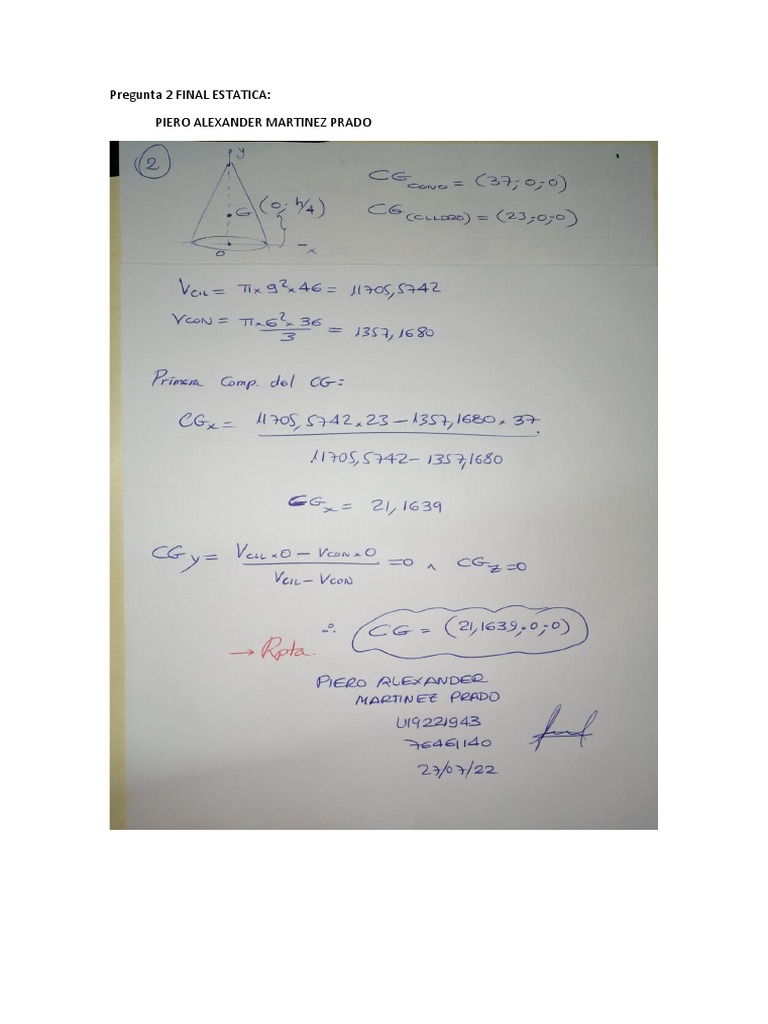 Pregunta 2 FINAL ESTATICA:
PIERO ALEXANDER MARTINEZ PRADO
2
y
G (0; h/4)
O
x
CG CONO = (37;0;0)
CG (CILINDRO) = (23;0;0)
VCIL = π x 9² x 46 = 11705,5742
VCON = π x 6² x 36 / 3 = 1357,1680
Primera Comp. del CG:
CGx = 11705,5742 x 23 – 1357,1680 x 37
11705,5742 – 1357,1680
CGx = 21,1639
CGy = VCIL x 0 – VCON x 0 / VCIL – VCON = 0 ∧ CGz = 0
∴ CG = (21,1639;0;0)
→ Rpta.
PIERO ALEXANDER
MARTINEZ PRADO
U19221943
76461140
27/07/22